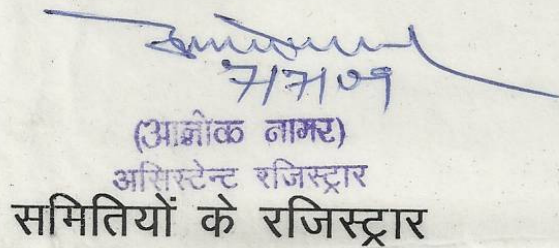 7/7/09
(आलोक नागर)
असिस्टेन्ट रजिस्ट्रार
समितियों के रजिस्ट्रार